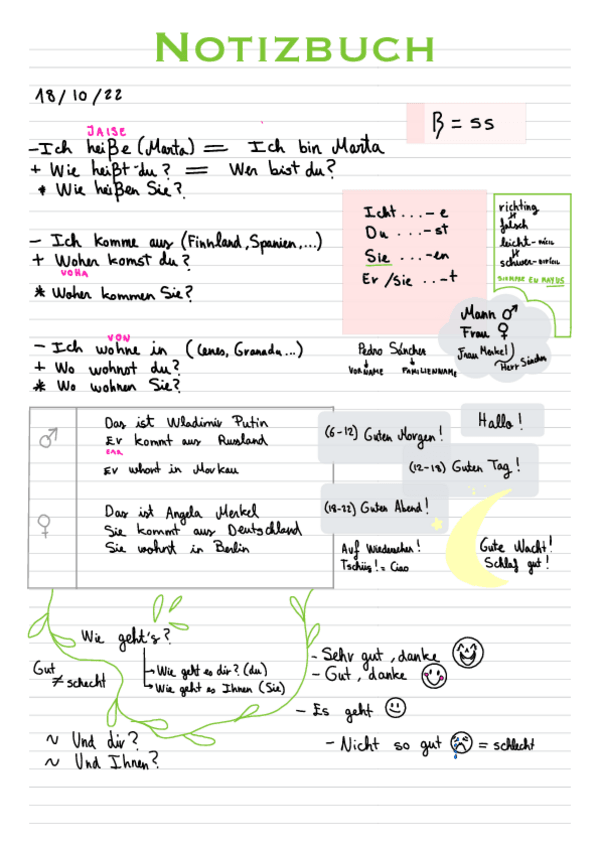 NOTIZBUCH
18/10/22
β = ss
JAISE
- Ich heiße (Marta) = Ich bin Marta
+ Wie heißt du? = Wer bist du?
* Wie heißen Sie?
Icht ...-e
Du ...-st
Sie ...-en
Er/Sie ...-t
richting
falsch
leicht-
schwer-
SIEMPRE EN MAYUS
- Ich komme aus (Finnland, Spanien,...)
+ Woher komst du?
VOHA
* Woher kommen Sie?
Mann ♂
Frau ♀
Frau Merkel
Herr Sánchez
VON
- Ich wohne in (Cenes, Granada...)
+ Wo wohnst du?
* Wo wohnen Sie?
Pedro Sáncher
VORNAME FAMILIENNAME
♂
Das ist Wladimir Putin
Er kommt aus Russland
EAR
Er whont in Morkau
♀
Das ist Angela Merkel
Sie kommt aus Deutschland
Sie wohnt in Berlin
Hallo!
(6-12) Guten Morgen!
(12-18) Guten Tag!
(18-22) Guten Abend!
Auf Wiedersehen!
Tschüs! = Ciao
Gute Nacht!
Schlaf gut!
Wie geht's?
Wie geht es dir? (du)
Wie geht es Ihnen (Sie)
Gut
≠ schecht
- Sehr gut, danke
- Gut, danke
- Es geht
- Nicht so gut = schlecht
~ Und dir?
~ Und Ihnen?